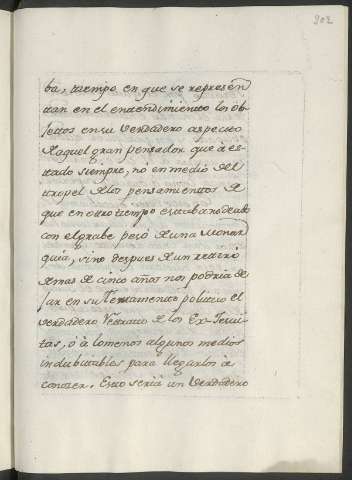 202
ba, tiempo en que se represen
tan en el entendimiento los ob-
jettos en su verdadero aspecto
Aquel gran pensador que à es-
tado siempre, nó en medio del
tropel de los pensamientos de
que en otro tiempo estaba
con el grabe peso de una Monar
quia, sino despues de un retiro
de mas de cinco años nos podria de
jar en su testamento politico el
verdadero Retrato de los Ex-Jesui
tas, ò à lo menos algunos medios
indubitables para llegarlos à
conocer. Esto seria un verdadero